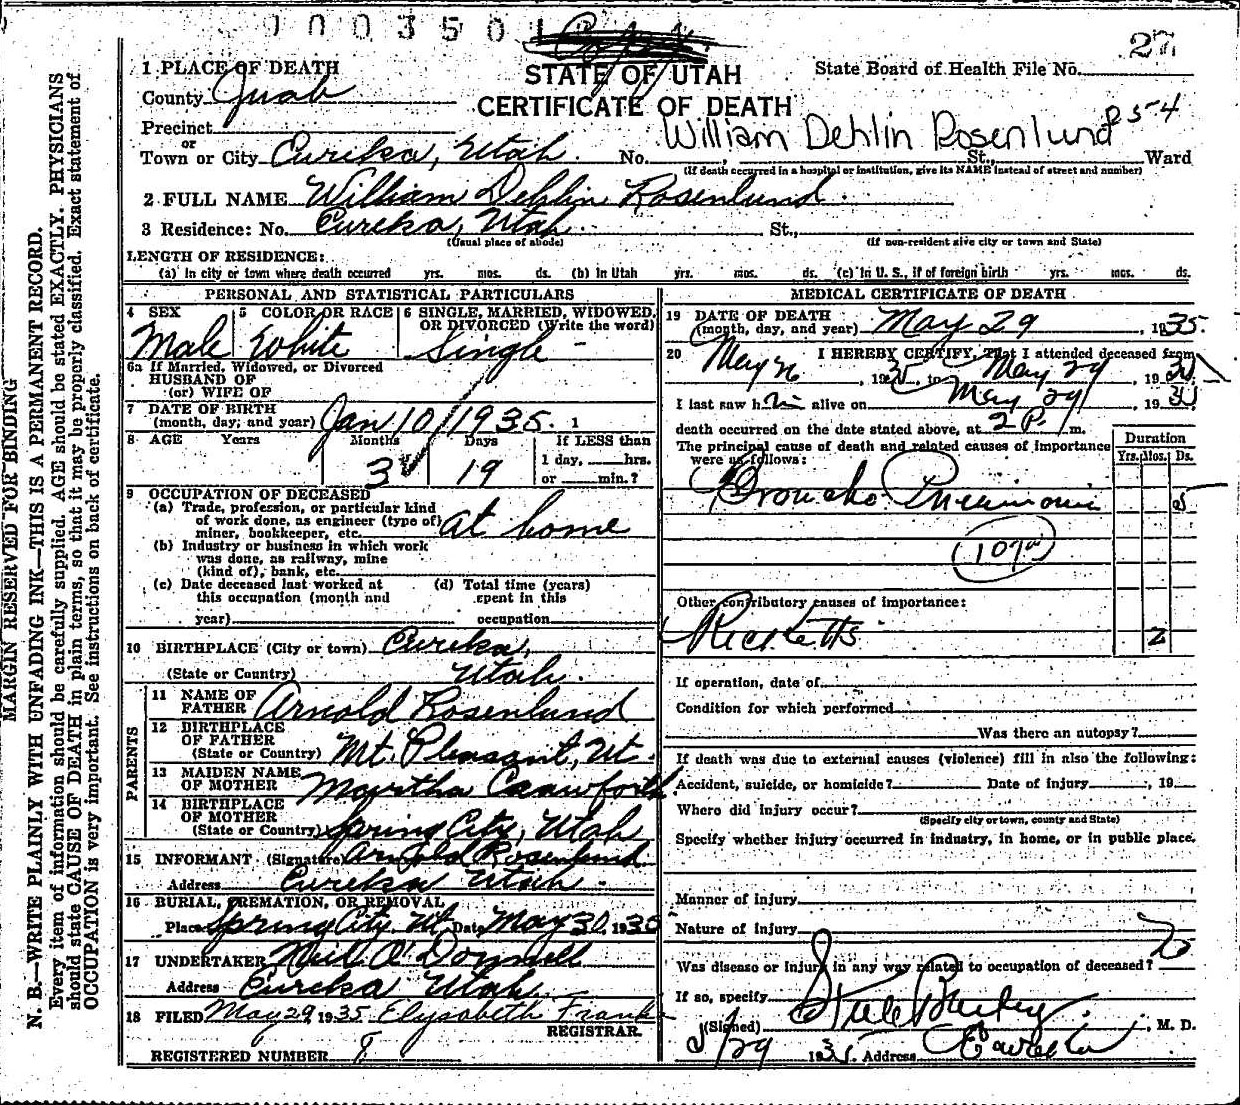 000350
27
1 PLACE OF DEATH
STATE OF UTAH
State Board of Health File No.
County Juab
CERTIFICATE OF DEATH
Precinct
or
William Dehlin Rosenlund
Town or City Eureka, Utah. No. St., Ward
(If death occurred in a hospital or institution, give its NAME instead of street and number)
2 FULL NAME William Dehlin Rosenlund
3 Residence: No. Eureka, Utah. St.,
(Usual place of abode) (If non-resident give city or town and State)
LENGTH OF RESIDENCE:
(a) In city or town where death occurred yrs. mos. ds. (b) In Utah yrs. mos. ds. (c) In U. S., if of foreign birth yrs. mos. ds.
PERSONAL AND STATISTICAL PARTICULARS
4 SEX Male
5 COLOR OR RACE White
6 SINGLE, MARRIED, WIDOWED, OR DIVORCED (Write the word) Single
6a If Married, Widowed, or Divorced
HUSBAND OF
(or) WIFE OF
7 DATE OF BIRTH
(month, day, and year) Jan 10 1935. 1
8 AGE Years Months Days If LESS than
3 19 1 day, hrs.
or min.?
9 OCCUPATION OF DECEASED
(a) Trade, profession, or particular kind
of work done, as engineer (type of)
miner, bookkeeper, etc. at home
(b) Industry or business in which work
was done, as railway, mine
(kind of), bank, etc.
(c) Date deceased last worked at (d) Total time (years)
this occupation (month and spent in this
year) occupation
10 BIRTHPLACE (City or town) Eureka,
(State or Country) Utah.
PARENTS
11 NAME OF
FATHER Arnold Rosenlund
12 BIRTHPLACE
OF FATHER
(State or Country) Mt. Pleasant, Ut.
13 MAIDEN NAME
OF MOTHER Martha Crawforth.
14 BIRTHPLACE
OF MOTHER
(State or Country) Spring City, Utah
15 INFORMANT (Signature) Arnold Rosenlund
Address Eureka Utah
16 BURIAL, CREMATION, OR REMOVAL
Place Spring City, Ut. Date May 30, 1935
17 UNDERTAKER Neil O'Donnell
Address Eureka Utah.
18 FILED May 29, 1935 Elysabeth Franke
REGISTRAR.
REGISTERED NUMBER 8
MEDICAL CERTIFICATE OF DEATH
19 DATE OF DEATH
(month, day, and year) May 29, 1935
20 I HEREBY CERTIFY, That I attended deceased from
May 26, 1935, to May 29, 1935
I last saw him alive on May 29, 1935
death occurred on the date stated above, at 2 P. m.
The principal cause of death and related causes of importance
were as follows:
Duration
Yrs. Mos. Ds.
Broncho Pneumonia 5
107a
Other contributory causes of importance:
Ricketts 2
If operation, date of
Condition for which performed
Was there an autopsy?
If death was due to external causes (violence) fill in also the following:
Accident, suicide, or homicide? Date of injury , 19
Where did injury occur?
(Specify city or town, county and State)
Specify whether injury occurred in industry, in home, or in public place.
Manner of injury
Nature of injury
Was disease or injury in any way related to occupation of deceased? No
If so, specify
(Signed) Steele Bailey, M. D.
5/29 1935. Address Eureka
MARGIN RESERVED FOR BINDING
N. B.—WRITE PLAINLY WITH UNFADING INK—THIS IS A PERMANENT RECORD.
Every item of information should be carefully supplied. AGE should be stated EXACTLY. PHYSICIANS
should state CAUSE OF DEATH in plain terms, so that it may be properly classified. Exact statement of
OCCUPATION is very important. See instructions on back of certificate.